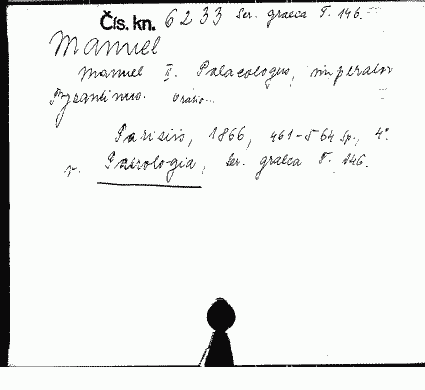 Čís. kn. 6233 Ser. graeca T. 146.
Manuel
Manuel II. Palaeologus, imperator
Byzantinus. Oratio...
Parisiis, 1866, 461-564 Sp., 4°.
v. Patrologia, Ser. graeca T. 146.